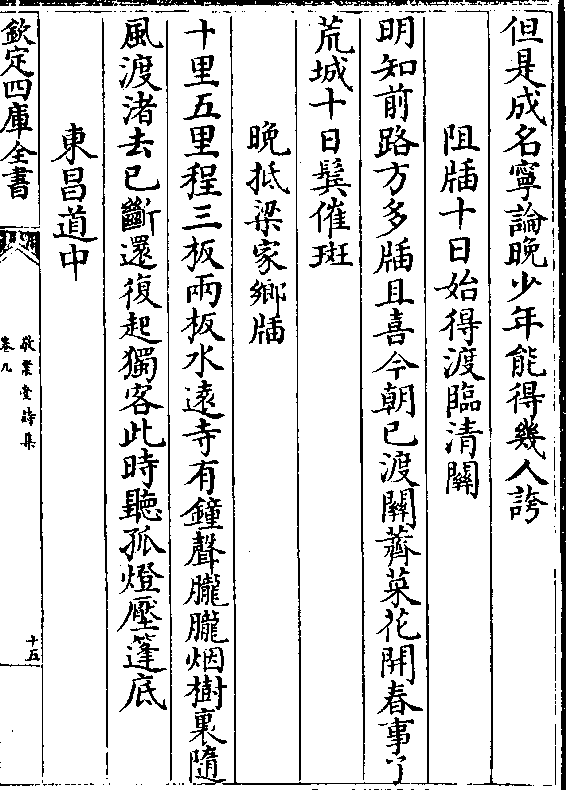 但是成名寧論晚少年能得幾人誇
阻牐十日始得渡臨清關
明知前路方多牐且喜今朝已渡關薺菜花開春事了
荒城十日鬂催斑
晚抵梁家鄉牐
十里五里程三板兩板水遠寺有鐘聲朧朧烟樹裏隨
風渡渚去已斷還復起獨客此時聽孤燈壓篷底
東昌道中
欽定四庫全書
敬業堂詩集
卷九
十五